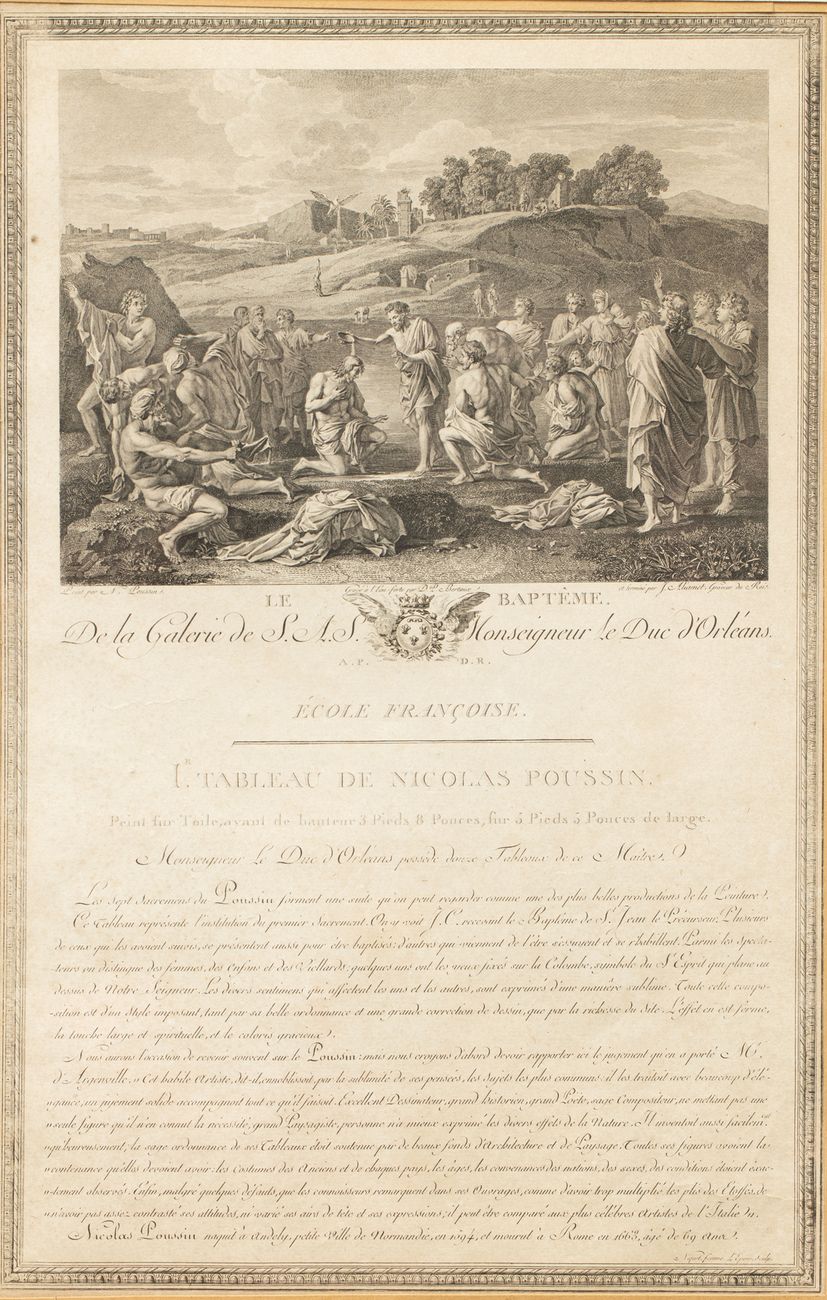 Peint par N. Poussin.
Gravé à l'Eau forte par D.P. Bertaux
et terminé par J. Aliamet, Graveur du Roi.
LE BAPTÊME.
De la Galerie de S.A.S. Monseigneur le Duc d'Orléans.
A.P. D.R.
ÉCOLE FRANÇOISE.
I.R TABLEAU DE NICOLAS POUSSIN.
Peint sur Toile, ayant de hauteur 3 Pieds 8 Pouces, sur 5 Pieds 5 Pouces de large.
Monseigneur Le Duc d'Orléans possède douze Tableaux de ce Maître.
Les Sept Sacremens du Poussin forment une suite qu'on peut regarder comme une des plus belles productions de la Peinture.
Ce Tableau représente l'institution du premier Sacrement. On y voit J.C. recevant le Baptême de S. Jean le Précurseur. Plusieurs
de ceux qui les avoient suivis, se présentent aussi pour être baptisés: d'autres qui viennent de l'être s'essuient et se rhabillent. Parmi les Specta-
teurs on distingue des femmes, des Enfans et des Vieillards: quelques uns ont les yeux fixés sur la Colombe, symbole du S.t Esprit qui plane au
dessus de Notre Seigneur. Les divers sentimens qui affectent les uns et les autres, sont exprimés d'une manière sublime. Toute cette compo-
sition est d'un Style imposant, tant par sa belle ordonnance et une grande correction de dessin, que par la richesse du Site. L'effet en est ferme,
la touche large et spirituelle, et le coloris gracieux.
Nous aurons l'occasion de revenir souvent sur le Poussin: mais nous croyons d'abord devoir rapporter ici le jugement qu'en a porté M.r
d'Argenville. » Cet habile Artiste, dit-il, ennoblissoit, par la sublimité de ses pensées, les Sujets les plus communs. il les traitoit avec beaucoup d'élé-
»gance, un jugement solide accompagnoit tout ce qu'il faisoit. Excellent Dessinateur, grand historien, grand Poete, sage Compositeur, ne mettant pas une
»seule figure qu'il n'en connut la nécessité, grand Paysagiste, personne n'a mieux exprimé les divers effets de la Nature. Il inventoit aussi facilem.ent
»qu'heureusement, la sage ordonnance de ses Tableaux étoit soutenue par de beaux fonds d'Architecture et de Paysage. Toutes ses figures avoient la
»contenance qu'elles devoient avoir: les Costumes des Anciens et de chaques pays, les âges, les convenances des nations, des sexes, des conditions étoient exac-
»tement observés. Enfin, malgré quelques défauts, que les connoisseurs remarquent dans ses Ouvrages, comme d'avoir trop multiplié les plis des Etoffes, de
»n'avoir pas assez contrasté ses attitudes, ni varié ses airs de tête et ses expressions; il peut être comparé aux plus célèbres Artistes de l'Italie ».
Nicolas Poussin naquit à Andely, petite Ville de Normandie, en 1594, et mourut à Rome en 1663, âgé de 69 Ans.